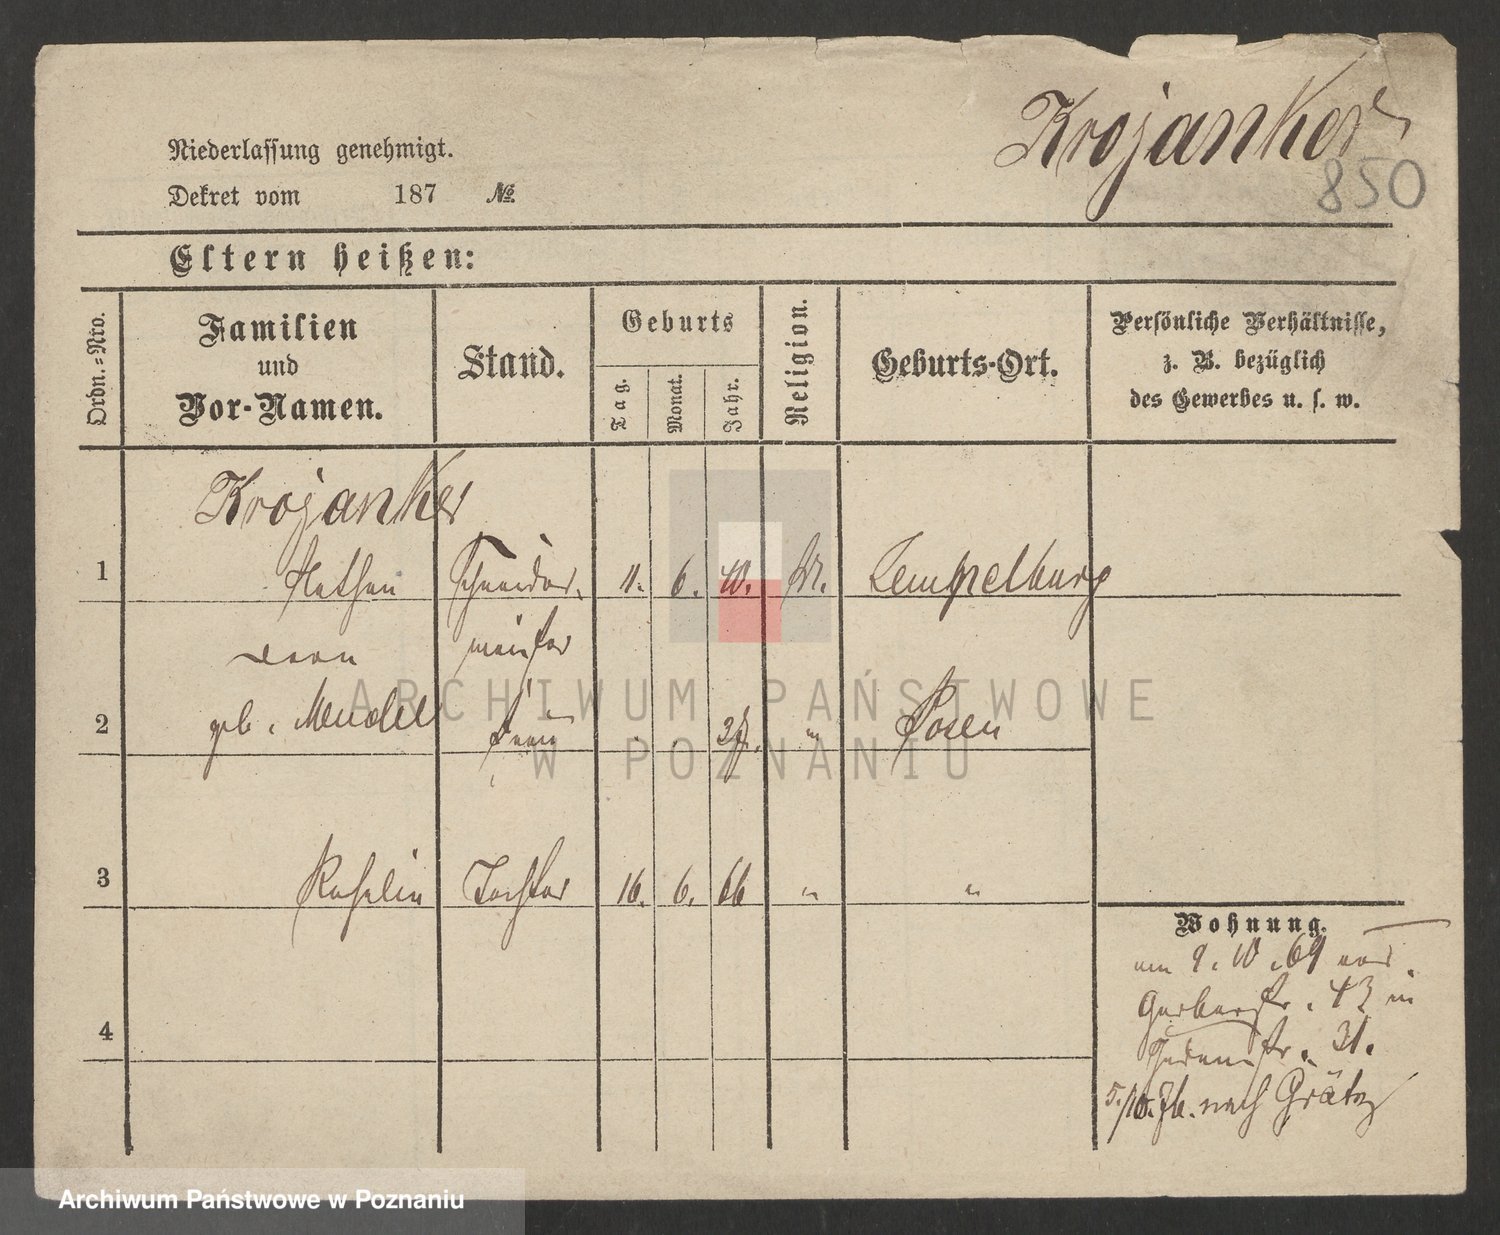 Krojanker
850
Niederlassung genehmigt.
Dekret vom 187 №
Eltern heißen:
Ordn.-Nro.
Familien
und
Vor-Namen.
Stand.
Geburts
Tag.
Monat.
Jahr.
Religion.
Geburts-Ort.
Persönliche Verhältnisse,
z. B. bezüglich
des Gewerbes u. s. w.
Krojanker
1 Nathan Schneider- 11. 6. 40. Tempelburg
meister
2 geb. Mendel Frau Posen
3 Tochter 16. 6. 66 " "
4
Wohnung.
am 9. 10. 69 von
Gerberstr. 43 in
Judenstr. 31.
5./10. 76. nach Grätz
ARCHIWUM PAŃSTWOWE
W POZNANIU
Archiwum Państwowe w Poznaniu